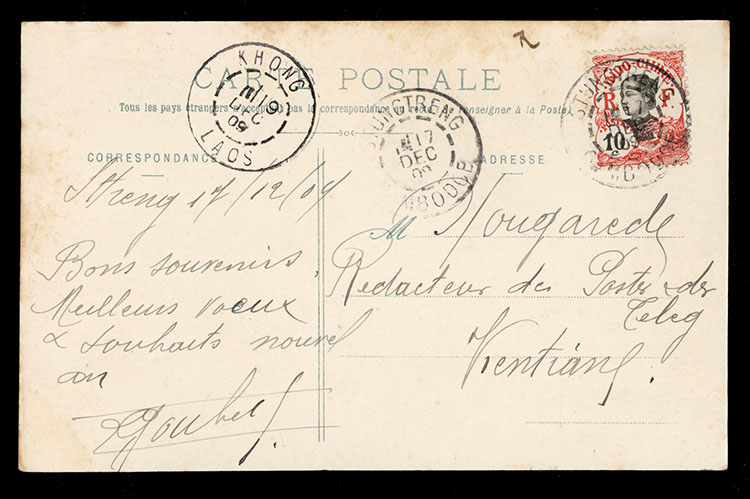 CARTE POSTALE
Tous les pays étrangers n'acceptent pas la correspondance au recto. (Se renseigner à la Poste)
KHONG
19
DEC
09
LAOS
STUNGTRENG
17
DEC
09
CAMBODGE
INDO-CHINE
R F
10
CORRESPONDANCE
ADRESSE
Streng 17/12/09
Bons souvenirs
Meilleurs voeux
& souhaits nouvel
an
M Nougarede
Redacteur des Postes & des
Teleg
Vientiane.